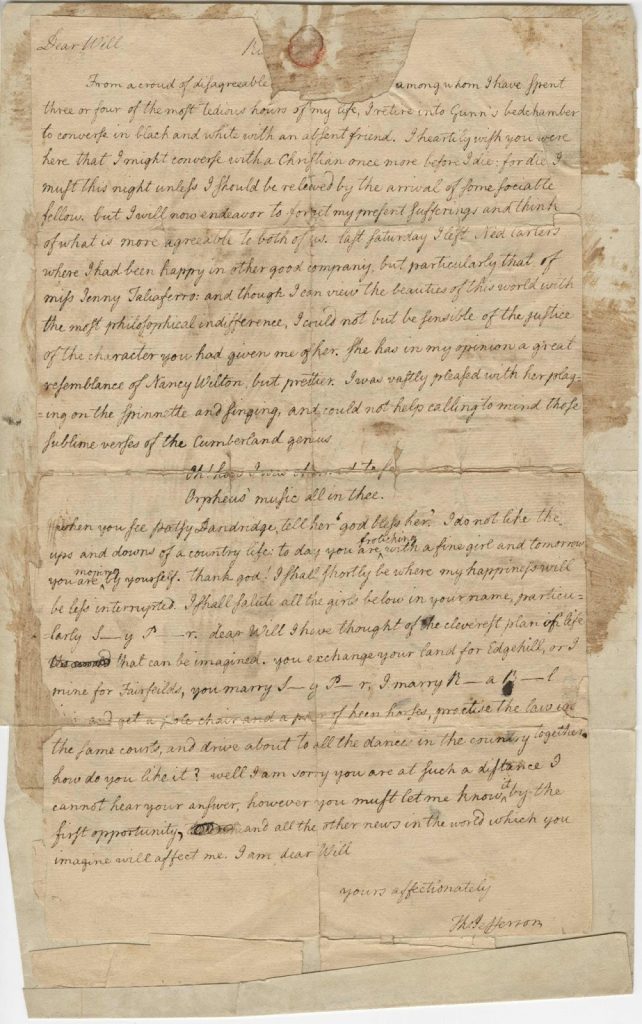 Dear Will
From a croud of disagreeable among whom I have spent
three or four of the most tedious hours of my life, I retire into Gunn's bedchamber
to converse in black and white with an absent friend. I heartily wish you were
here that I might converse with a Christian once more before I die: for die I
must this night unless I should be releived by the arrival of some sociable
fellow. but I will now endeavor to forget my present sufferings and think
of what is more agreeable to both of us. last saturday I left Ned Carter's
where I had been happy in other good company, but particularly that of
miss Jenny Taliaferro: and though I can view the beauties of this world with
the most philosophical indifference, I could not but be sensible of the justice
of the character you had given me of her. she has in my opinion a great
resemblance of Nancy Wilton, but prettier. I was vastly pleased with her play-
=ing on the spinnette and singing, and could not help calling to mind those
sublime verses of the Cumberland genius
Oh! how I was to
Orpheus' music all in thee.
when you see patsy Dandridge, tell her "god bless her." I do not like the
ups and downs of a country life: to day you are frolicking with a fine girl and tomorrow
you are moping by yourself. thank god! I shall shortly be where my happiness will
be less interrupted. I shall salute all the girls below in your name, particu-
-larly S—y P—r. dear Will I have thought of the cleverest plan of life
that can be imagined. you exchange your land for Edgehill, or I
mine for Fairfeilds, you marry S—y P—r, I marry R—a B—l
and get a pole chair and a pair of keen horses, practise the law in
the same courts, and drive about to all the dances in the country together.
how do you like it? well I am sorry you are at such a distance I
cannot hear your answer, however you must let me know it by the
first opportunity, and all the other news in the world which you
imagine will affect me. I am dear Will
yours affectionately
Th: Jefferson